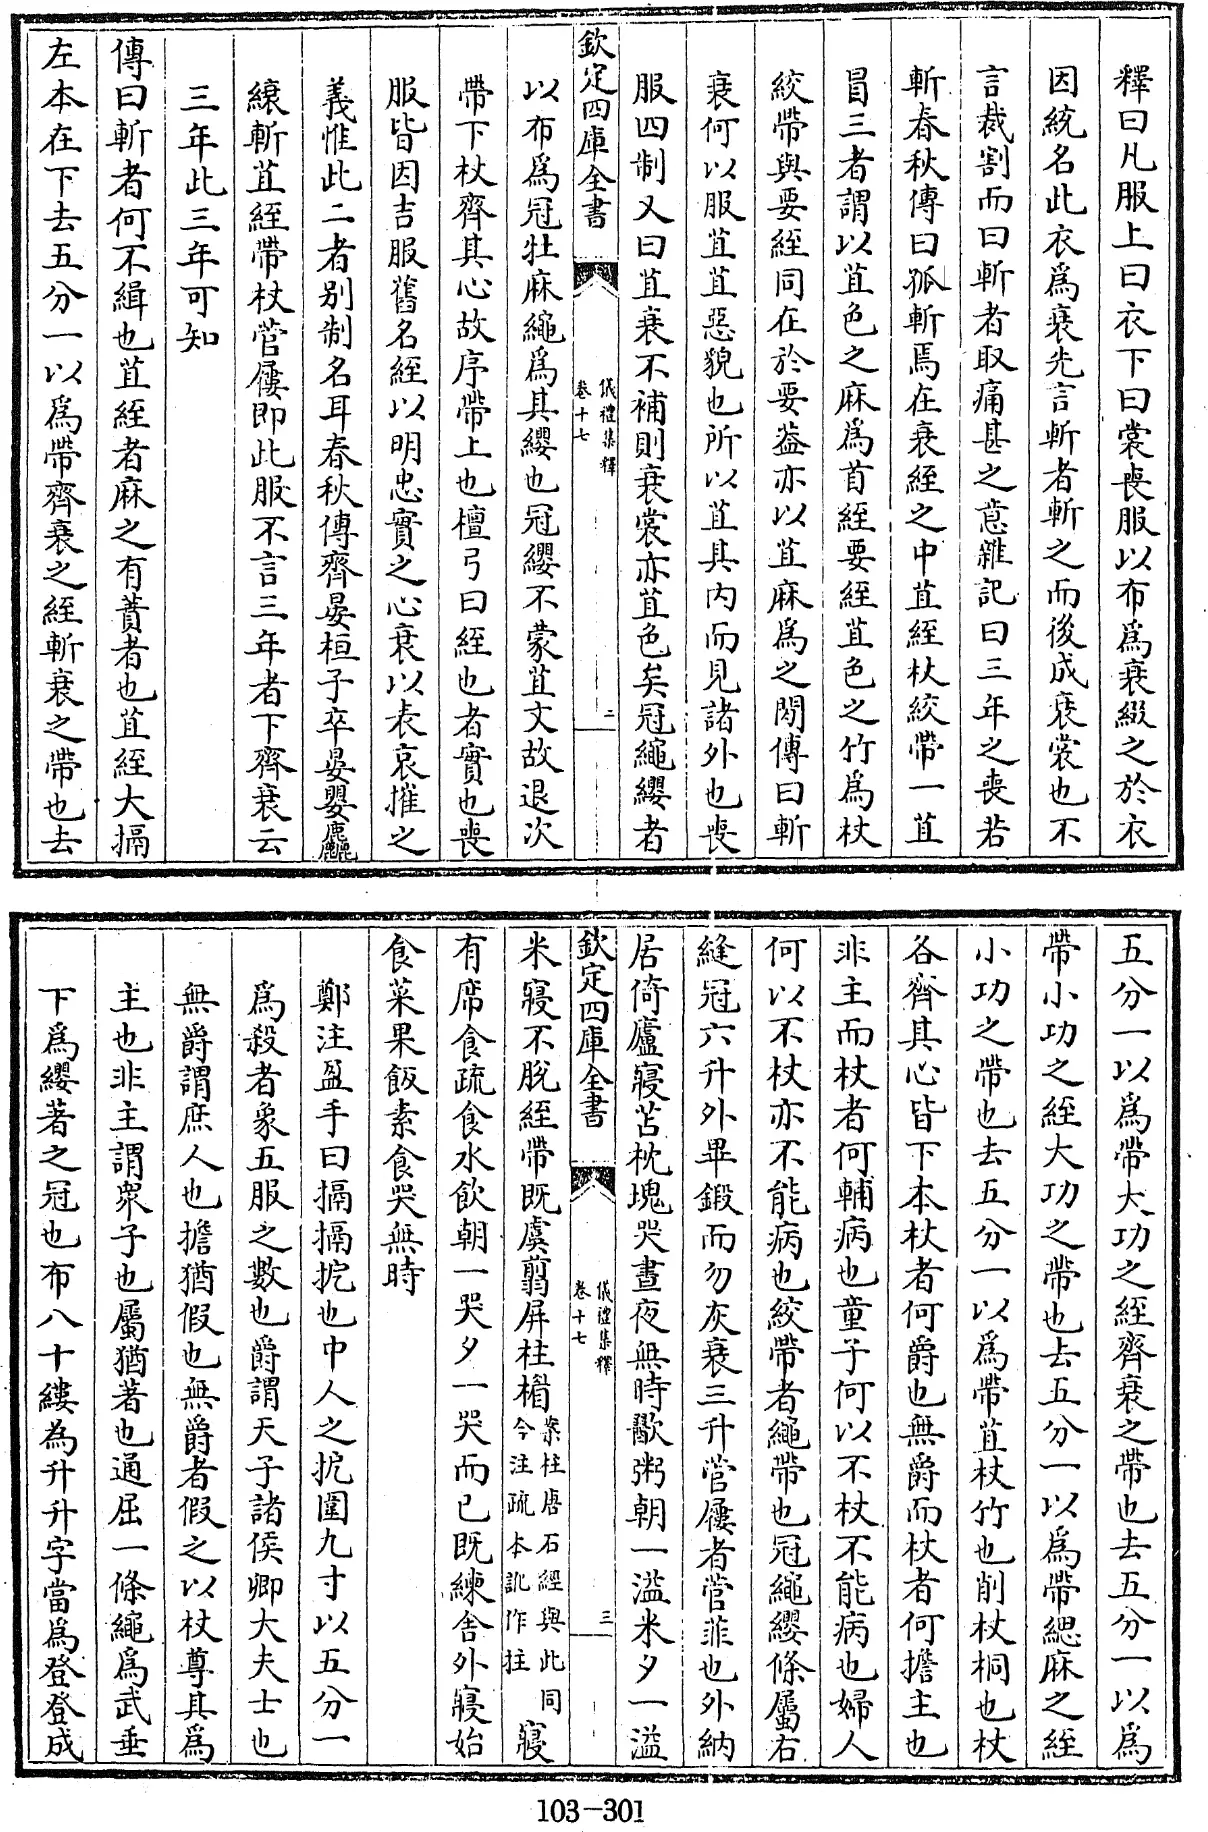 釋曰凡服上曰衣下曰裳喪服以布爲衰綴之於衣
因統名此衣爲衰先言斬者斬之而後成衰裳也不
言裁割而曰斬者取痛甚之意雜記曰三年之喪若
斬春秋傳曰孤斬焉在衰絰之中苴絰杖絞帶一苴
冒三者謂以苴色之麻爲首絰要絰苴色之竹爲杖
絞帶與要絰同在於要葢亦以苴麻爲之閒傳曰斬
衰何以服苴苴惡貌也所以苴其内而見諸外也喪
服四制又曰苴衰不補則衰裳亦苴色矣冠繩纓者
欽定四庫全書
儀禮集釋
卷十七
二
以布爲冠牡麻繩爲其纓也冠纓不蒙苴文故退次
帶下杖齊其心故序帶上也檀弓曰絰也者實也喪
服皆因吉服舊名絰以明忠實之心衰以表哀摧之
義惟此二者别制名耳春秋傳齊晏桓子卒晏嬰麤
縗斬苴絰帶杖菅屨即此服不言三年者下齊衰云
三年此三年可知
傳曰斬者何不緝也苴絰者麻之有蕡者也苴絰大搹
左本在下去五分一以爲帶齊衰之絰斬衰之帶也去
五分一以爲帶大功之絰齊衰之帶也去五分一以爲
帶小功之絰大功之帶也去五分一以爲帶緦麻之絰
小功之帶也去五分一以爲帶苴杖竹也削杖桐也杖
各齊其心皆下本杖者何爵也無爵而杖者何擔主也
非主而杖者何輔病也童子何以不杖不能病也婦人
何以不杖亦不能病也絞帶者繩帶也冠繩纓條屬右
縫冠六升外畢鍛而勿灰衰三升菅屨者菅菲也外納
居倚廬寢苫枕塊哭晝夜無時歠粥朝一溢米夕一溢
欽定四庫全書
儀禮集釋
卷十七
三
米寢不脫絰帶既虞翦屏柱楣案柱唐石經與此同今注疏本訛作拄寢
有席食疏食水飲朝一哭夕一哭而已既練舍外寢始
食菜果飯素食哭無時
鄭注盈手曰搹搹扼也中人之扼圍九寸以五分一
爲殺者象五服之數也爵謂天子諸侯卿大夫士也
無爵謂庶人也擔猶假也無爵者假之以杖尊其爲
主也非主謂衆子也屬猶著也通屈一條繩爲武垂
下爲纓著之冠也布八十縷為升升字當爲登登成
103-301